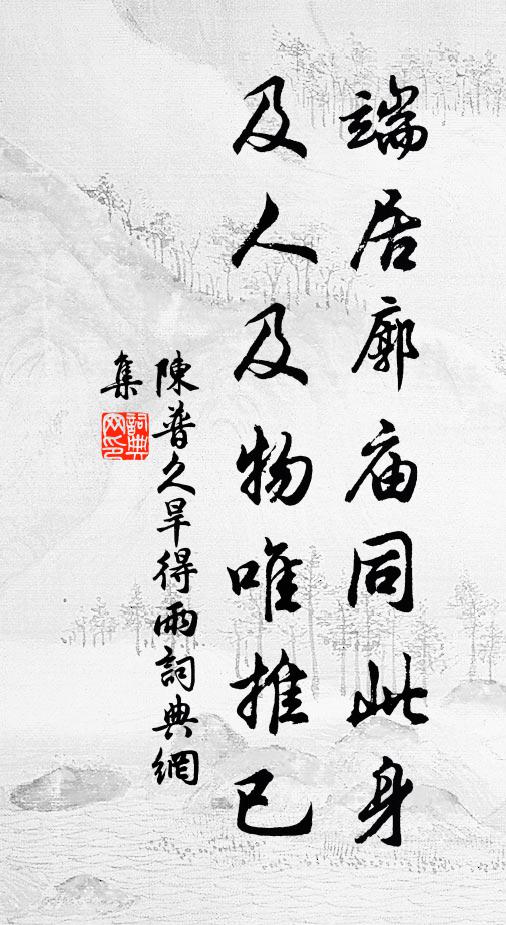 端居廓庙同此身
及人及物唯推已
陳普久旱得雨詞典網
集
詞典网印